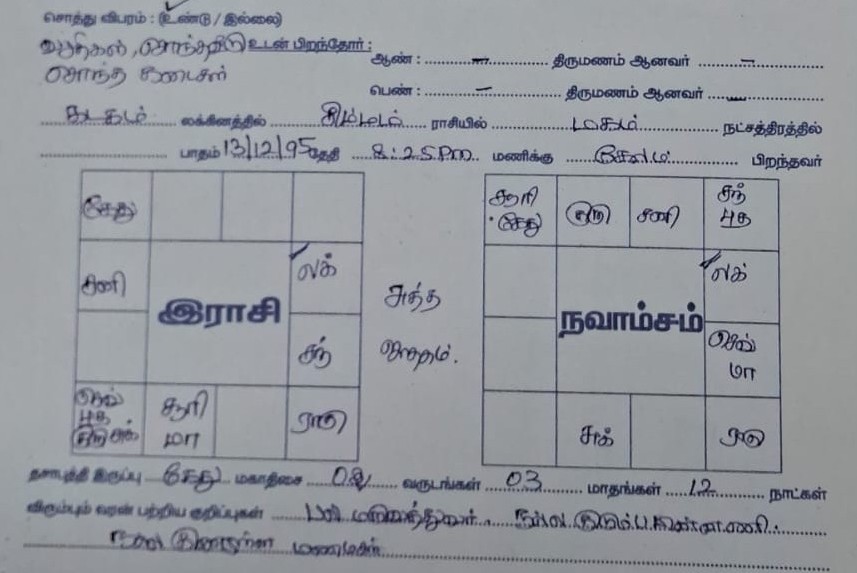 சொத்து விபரம் : (உண்டு / இல்லை)
உடன் பிறந்தோர் : ஆண் : – திருமணம் ஆனவர் –
சொந்த கடைகள்
பெண் : – திருமணம் ஆனவர்
கடகம் லக்கினத்தில் சிம்மம் ராசியில் மகம் நட்சத்திரத்தில்
பாதம் 13/12/95 தேதி 8:25 P.m. மணிக்கு சேலம் பிறந்தவர்
கேது
சனி லக்
இராசி
சந்
செவ் புத குரு சுக் சூரி மா ராகு
சுத்த
ஜாதகம்.
சூரி கேது குரு சனி சந் புத
லக்
நவாம்சம்
செவ் மா
சுக் ராகு
தசாபுத்தி இருப்பு கேது மகாதிசை வருடங்கள் 03 மாதங்கள் 12 நாட்கள்
விரும்பும் வரன் பற்றிய குறிப்புகள் பல் மருத்துவர். நல்ல குடும்ப
நல்ல குணமுள்ள மணமகன்